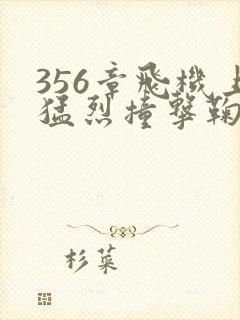 356章飛機上
猛烈撞擊鞠
杉菜